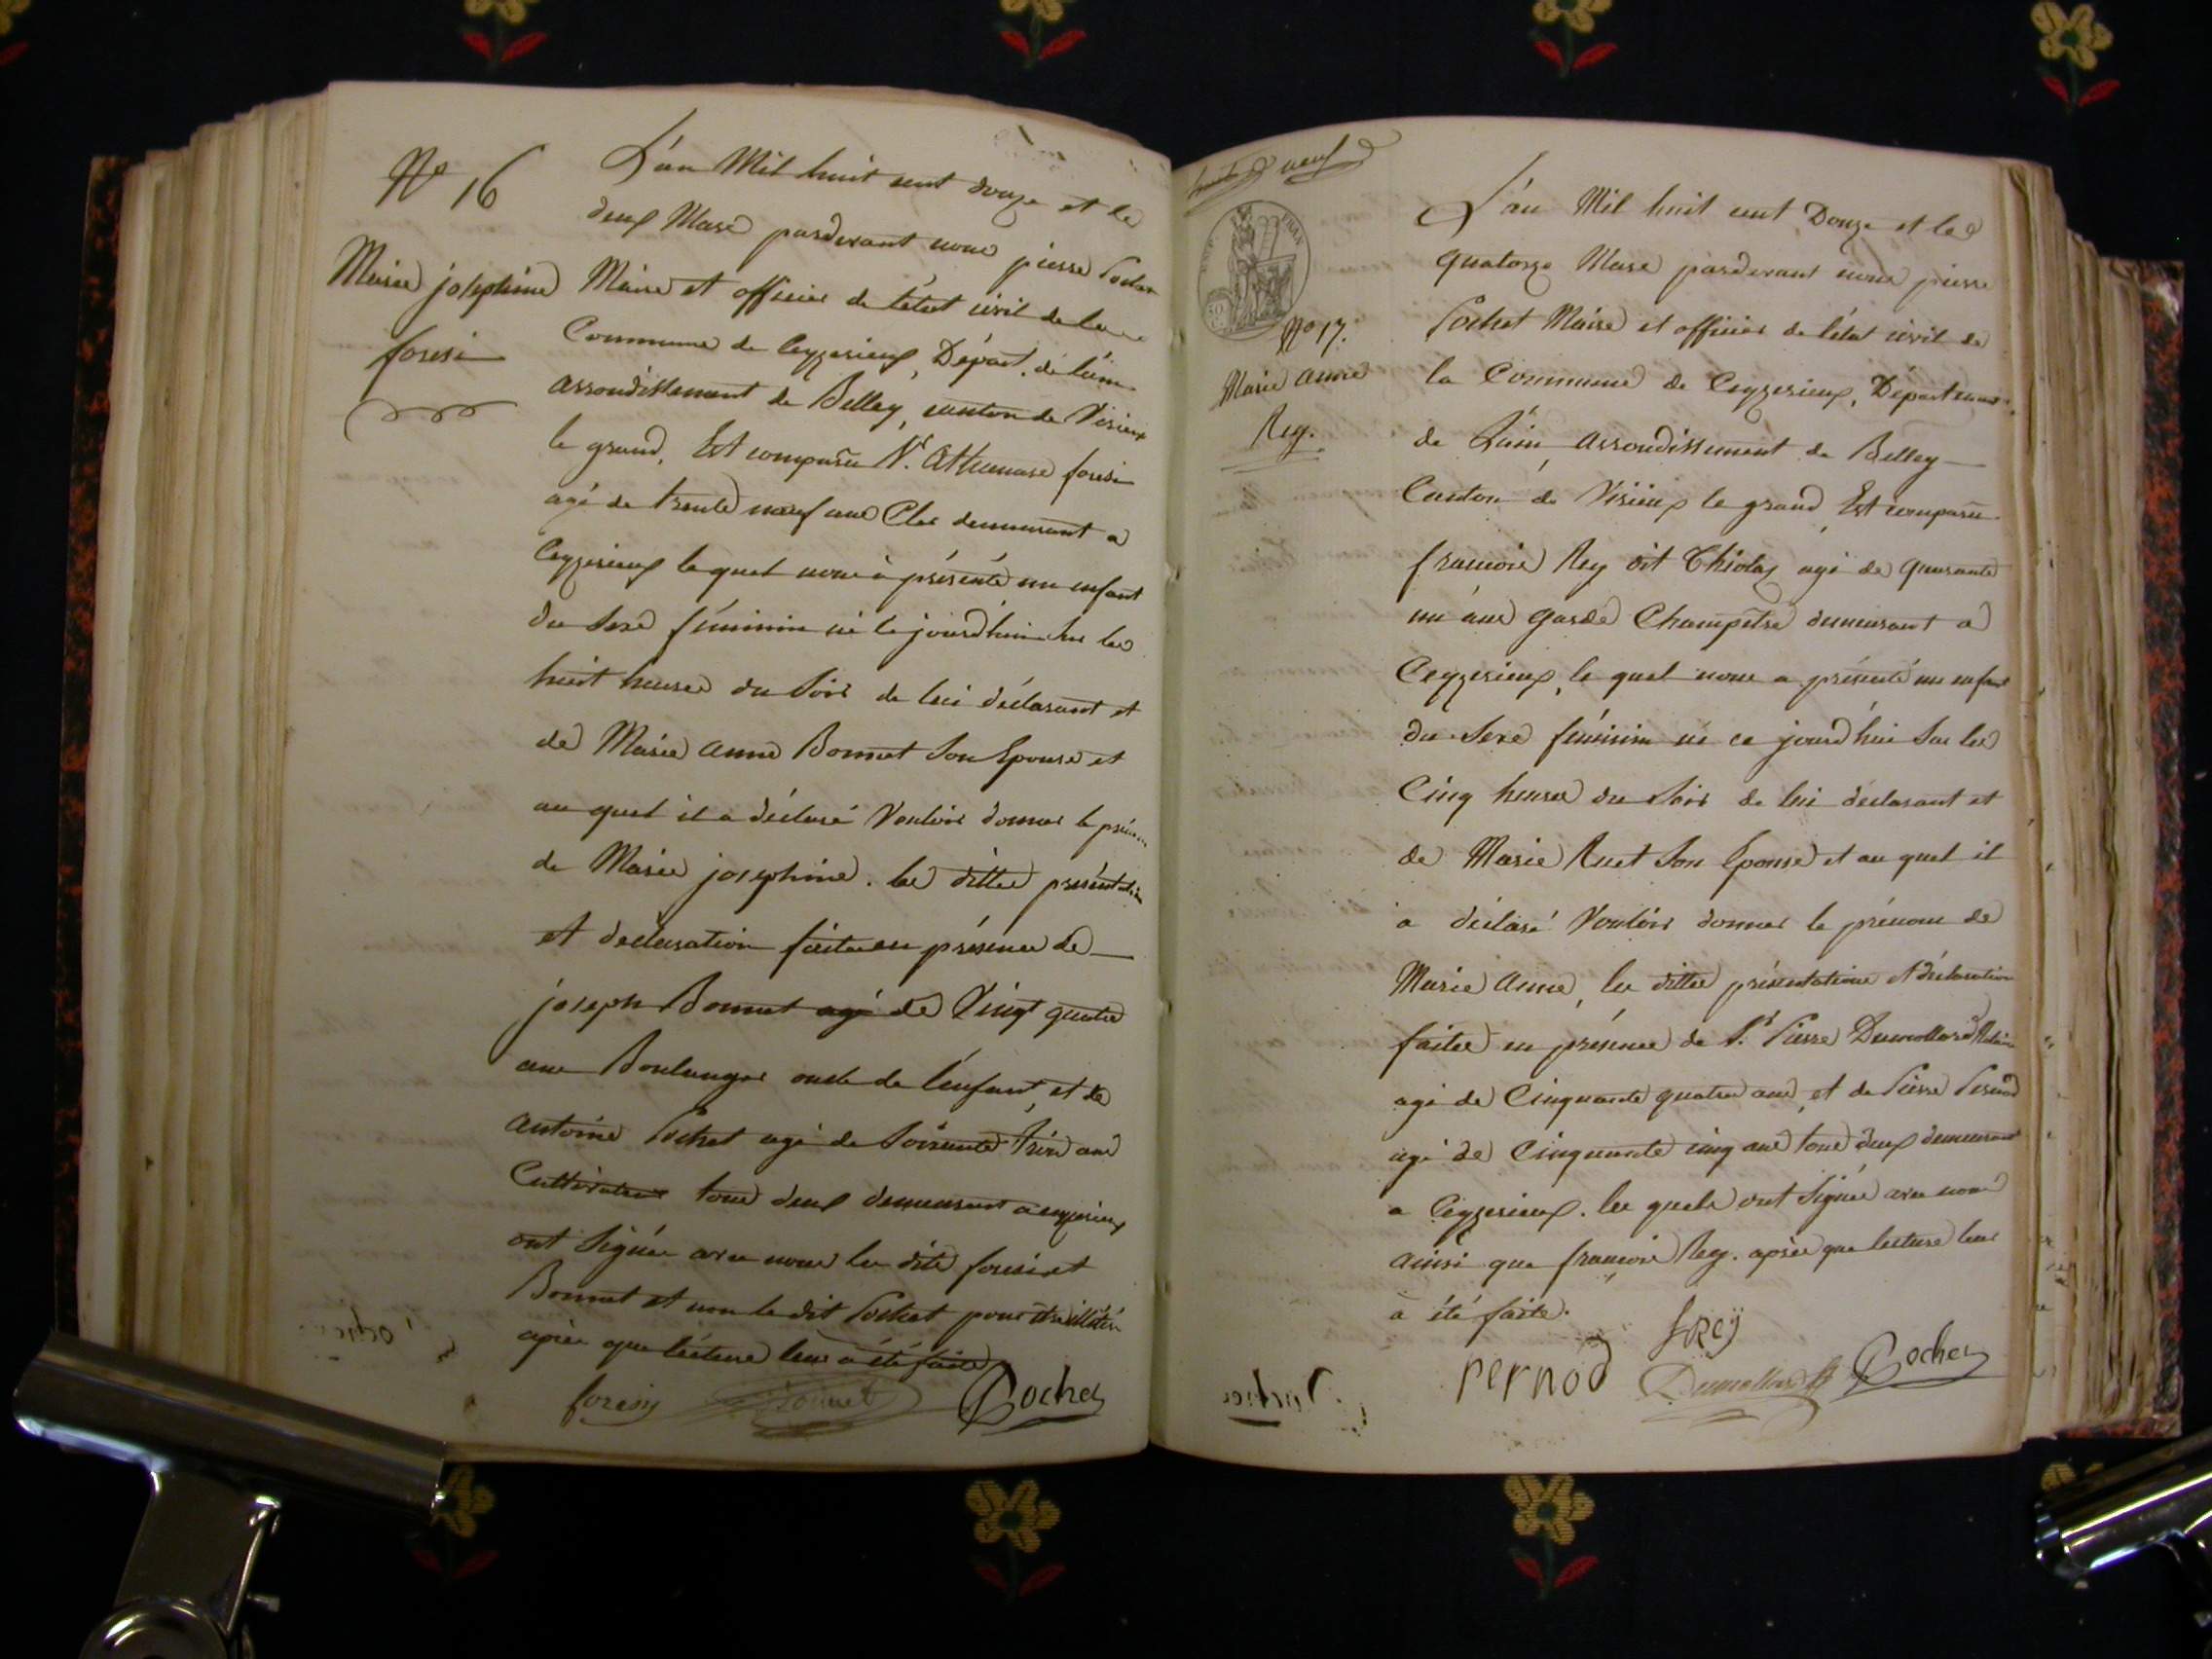 N° 16
Marie josephine
foresi
L'an Mil huit cent douze et le
deux Mars pardevant nous pierre Pochet
Maire et officier de l'état civil de la
Commune de Ceyzerieux, Départ. de l'ain
arrondissement de Belley, canton de Virieux
le grand, Est comparu Sr. Athanase foresi
agé de trente neuf ans demeurant a
Ceyzerieux le quel nous à présenté un enfant
du Sexe féminin né le jourd'hui Sur les
huit heures du Soir de lui déclarant et
de Marie anne Bonnet Son Epouse et
au quel il a déclaré Vouloir donner le prénom
de Marie josephine. les dittes présentation
et declaration faites en présence de
joseph Bonnet agé de Vingt quatre
ans Boulanger oncle de l'enfant, et de
antoine Pochet agé de Soixante Trois ans
Cultivateur tous deux demeurant a ceyzerieux
ont Signés avec nous les dits foresi et
Bonnet et non le dit Pochet pour être illétéré
après que lécture leur a été faite
foresi Bonnet Pochet
trente neuf
FRAN
N° 17.
Marie anne
Rey.
L'an Mil huit cent Douze et le
quatorze Mars pardevant nous pierre
Pochet Maire et officier de l'état civil de
la Commune de Ceyzerieux, Département
de L'ain, arrondissement de Belley
Canton de Virieux le grand, Est comparu
françois Rey dit Thiolaz agé de quarante
un ans garde Champetre demeurant a
Ceyzerieux, le quel nous a présenté un enfant
du Sexe féminin né ce jourd'hui Sur les
Cinq heures du Soir de lui déclarant et
de Marie Ruet Son Epouse et au quel il
a déclaré Vouloir donner le prénom de
Marie anne, les dittes présentations et déclaration
faites en présence de Sr. Pierre Dumollard Notaire
agé de Cinquante quatre ans, et de Pierre Pernod
agé de Cinquante cinq ans tous deux demeurant
a Ceyzerieux. les quels ont Signés avec nous
ainsi que françois Rey. après que lecture leur
à été faite.
f Rey
pernod Dumollard Pochet